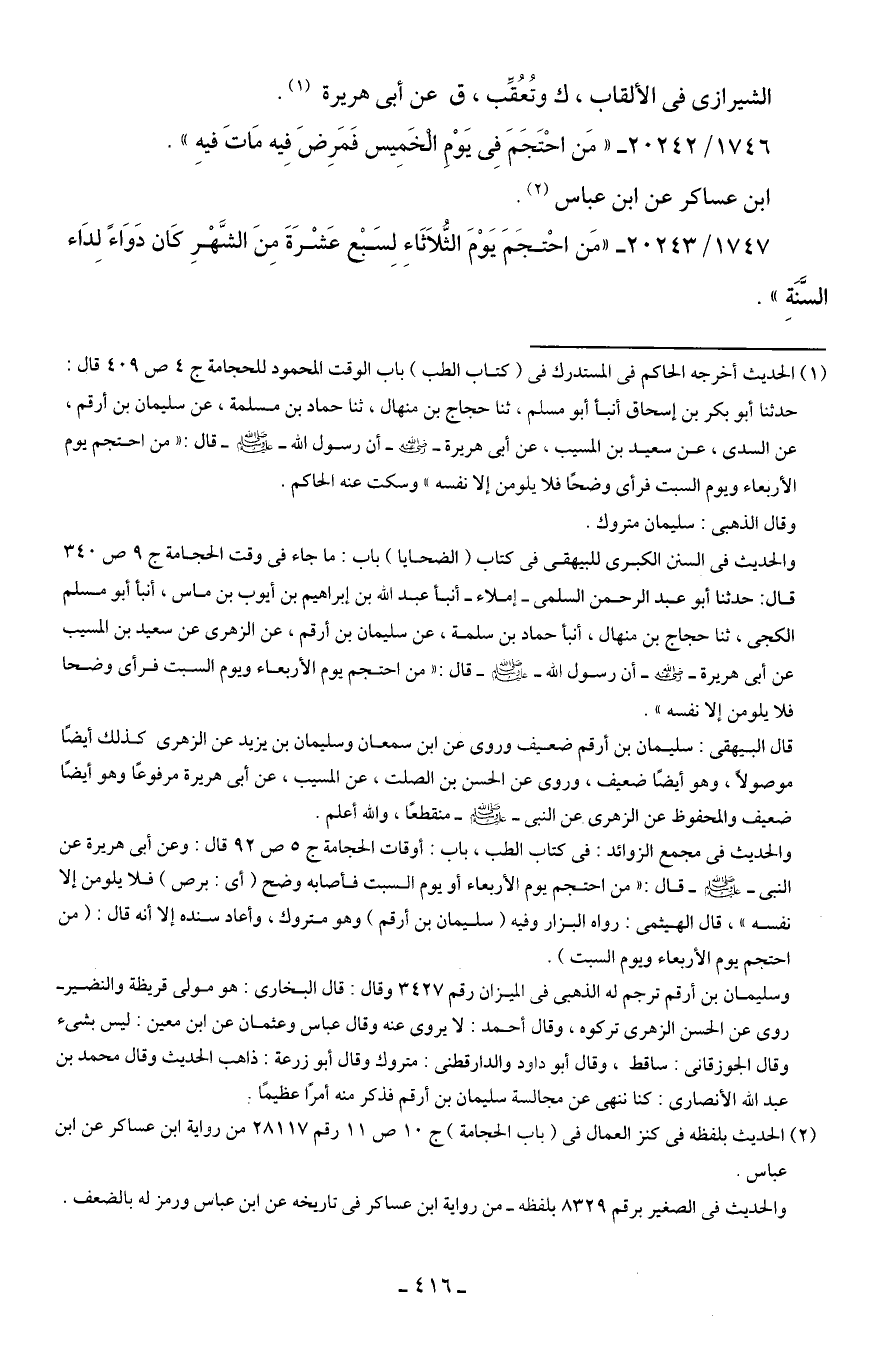 الشيرازى فى الألقاب ، ك وتُعُقِّب ، ق عن أبى هريرة (١) .
١٧٤٦/ ٢٠٢٤٢ـ « مَن احْتَجَمَ فِى يَوْمِ الْخَمِيسِ فَمَرِضَ فِيهِ مَاتَ فِيهِ » .
ابن عساكر عن ابن عباس (٢) .
١٧٤٧/ ٢٠٢٤٣ـ «مَن احْتَجَمَ يَوْمَ الثُّلَاثَاءِ لِسَبْعِ عَشْرَةَ مِنَ الشَّهْرِ كَان دَوَاءً لِدَاءِ
السَّنَةِ » .
(١) الحديث أخرجه الحاكم فى المستدرك فى ( كتاب الطب ) باب الوقت المحمود للحجامة ج ٤ ص ٤٠٩ قال :
حدثنا أبو بكر بن إسحاق أنبأ أبو مسلم ، ثنا حجاج بن منهال ، ثنا حماد بن مسلمة ، عن سليمان بن أرقم ،
عن السدى ، عن سعيد بن المسيب ، عن أبى هريرة ـ رضي الله عنه ـ أن رسول الله ـ صلى الله عليه وسلم ـ قال :« من احتجم يوم
الأربعاء ويوم السبت فرأى وضحًا فلا يلومن إلا نفسه » وسكت عنه الحاكم .
وقال الذهبى : سليمان متروك .
والحديث فى السنن الكبرى للبيهقى فى كتاب ( الضحايا ) باب : ما جاء فى وقت الحجامة ج ٩ ص ٣٤٠
قال: حدثنا أبو عبد الرحمن السلمى ـ إملاء ـ أنبأ عبد الله بن إبراهيم بن أيوب بن ماس ، أنبأ أبو مسلم
الكجى ، ثنا حجاج بن منهال ، أنبأ حماد بن سلمة ، عن سليمان بن أرقم ، عن الزهرى عن سعيد بن المسيب
عن أبى هريرة ـ رضي الله عنه ـ أن رسول الله ـ صلى الله عليه وسلم ـ قال :« من احتجم يوم الأربعاء ويوم السبت فرأى وضحا
فلا يلومن إلا نفسه » .
قال البيهقى : سليمان بن أرقم ضعيف وروى عن ابن سمعان وسليمان بن يزيد عن الزهرى كذلك أيضًا
موصولاً ، وهو أيضًا ضعيف ، وروى عن الحسن بن الصلت ، عن المسيب ، عن أبى هريرة مرفوعًا وهو أيضًا
ضعيف والمحفوظ عن الزهرى عن النبى ـ صلى الله عليه وسلم ـ منقطعًا ، والله أعلم .
والحديث فى مجمع الزوائد : فى كتاب الطب ، باب : أوقات الحجامة ج ٥ ص ٩٢ قال : وعن أبى هريرة عن
النبى ـ صلى الله عليه وسلم ـ قال :« من احتجم يوم الأربعاء أو يوم السبت فأصابه وضح ( أى : برص ) فلا يلومن إلا
نفسه » ، قال الهيثمى : رواه البزار وفيه ( سليمان بن أرقم ) وهو متروك ، وأعاد سنده إلا أنه قال : ( من
احتجم يوم الأربعاء ويوم السبت ) .
وسليمان بن أرقم ترجم له الذهبى فى الميزان رقم ٣٤٢٧ وقال : قال البخارى : هو مولى قريظة والنضيرـ
روى عن الحسن الزهرى تركوه ، وقال أحمد : لا يروى عنه وقال عباس وعثمان عن ابن معين : ليس بشىء
وقال الجوزقانى : ساقط ، وقال أبو داود والدارقطنى : متروك وقال أبو زرعة : ذاهب الحديث وقال محمد بن
عبد الله الأنصارى : كنا ننهى عن مجالسة سليمان بن أرقم فذكر منه أمرًا عظيمًا .
(٢) الحديث بلفظه فى كنز العمال فى ( باب الحجامة ) ج ١٠ ص ١١ رقم ٢٨١١٧ من رواية ابن عساكر عن ابن
عباس .
والحديث فى الصغير برقم ٨٣٢٩ بلفظه ـ من رواية ابن عساكر فى تاريخه عن ابن عباس ورمز له بالضعف .
ـ ٤١٦ ـ